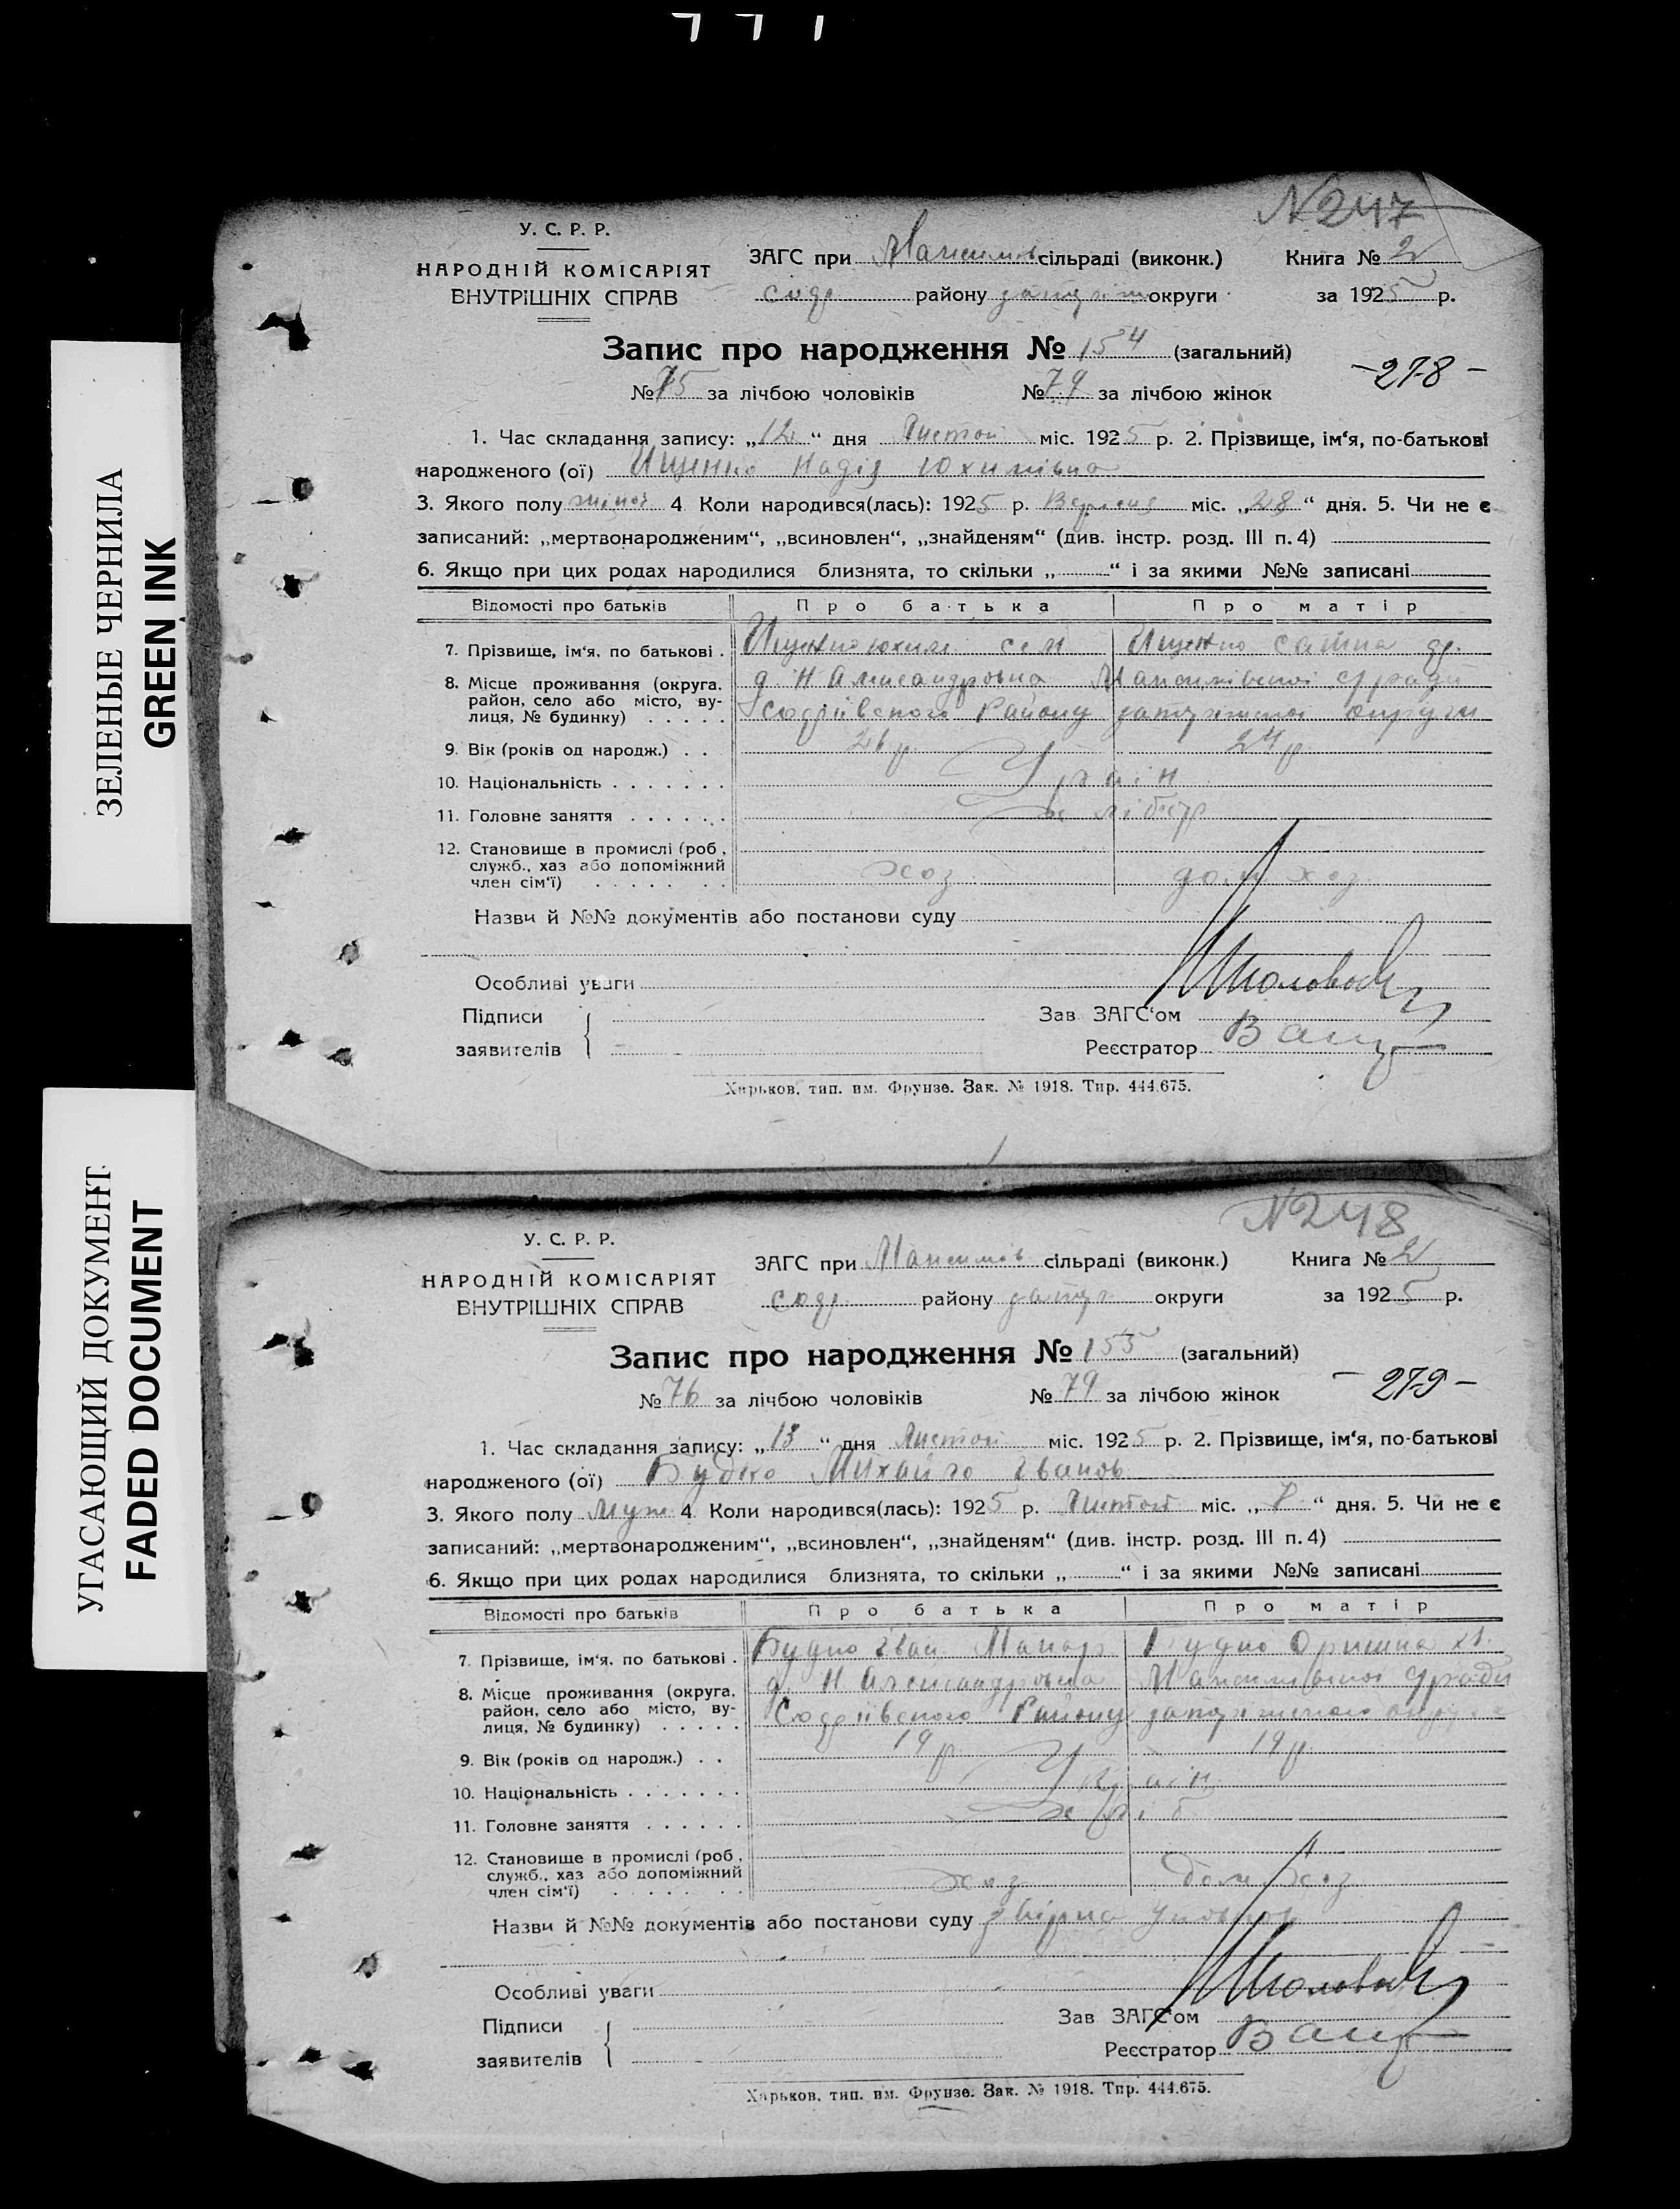 ЗЕЛЕНЫЕ ЧЕРНИЛА
GREEN INK
УГАСАЮЩИЙ ДОКУМЕНТ
FADED DOCUMENT
N 247
У. С. Р. Р.
НАРОДНІЙ КОМІСАРІЯТ
ВНУТРІШНІХ СПРАВ
ЗАГС при Максимов сільраді (виконк.) Книга № 2
району округи за 1925 р.
Запис про народження № 154 (загальний)
-278-
№ 75 за лічбою чоловіків № 79 за лічбою жінок
1. Час складання запису: „12“ дня Листоп міс. 1925 р. 2. Прізвище, ім‘я, по-батькові
народженого (ої) Ищенко Надія Юхимівна
3. Якого полу жіноч 4 Коли народився(лась): 1925 р. Вересня міс. „28“ дня. 5. Чи не є
записаний: „мертвонародженим“, „всиновлен“, „знайденям“ (див. інстр. розд. III п. 4)
6. Якщо при цих родах народилися близнята, то скільки „ “ і за якими №№ записані
Відомості про батьків Про батька Про матір
7. Прізвище, ім‘я, по батькові . Ищенко Юхим сем Ищенко
8. Місце проживання (округа, район, село або місто, вулиця, № будинку) . . . . . д. Н Александровка Максимівскоі
Району округи
9. Вік (років од народж.) . . 26 р 24 р.
10. Національність . . . . . . . Україн
11. Головне заняття . . . . . .
12. Становище в промислі (роб., служб., хаз або допоміжний член сім‘ї) . . . . . . . хоз дом хоз.
Назви й №№ документів або постанови суду
Особливі уваги
Підписи
заявителів
Зав ЗАГС‘ом
Реєстратор
Харьков, тип. им. Фрунзе. Зак. № 1918. Тир. 444.675.
N 248
У. С. Р. Р.
НАРОДНІЙ КОМІСАРІЯТ
ВНУТРІШНІХ СПРАВ
ЗАГС при Максимов сільраді (виконк.) Книга № 2
району округи за 1925 р.
Запис про народження № 155 (загальний)
-279-
№ 76 за лічбою чоловіків № 79 за лічбою жінок
1. Час складання запису: „13“ дня Листоп міс. 1925 р. 2. Прізвище, ім‘я, по-батькові
народженого (ої) Будко Михайло Іванов
3. Якого полу муж 4 Коли народився(лась): 1925 р. Листоп міс. „7“ дня. 5. Чи не є
записаний: „мертвонародженим“, „всиновлен“, „знайденям“ (див. інстр. розд. III п. 4)
6. Якщо при цих родах народилися близнята, то скільки „ “ і за якими №№ записані
Відомості про батьків Про батька Про матір
7. Прізвище, ім‘я. по батькові . Будко Іван Макар Будко Оришка
8. Місце проживання (округа, район, село або місто, вулиця, № будинку) . . . . . д. Н Александровка Максимівскоі
Району
9. Вік (років од народж.) . . 19 р 19 р.
10. Національність . . . . . . . Україн.
11. Головне заняття . . . . . .
12. Становище в промислі (роб., служб., хаз або допоміжний член сім‘ї) . . . . . . . хоз дом хоз
Назви й №№ документів або постанови суду
Особливі уваги
Підписи
заявителів
Зав ЗАГС‘ом
Реєстратор
Харьков, тип. им. Фрунзе. Зак. № 1918. Тир. 444.675.